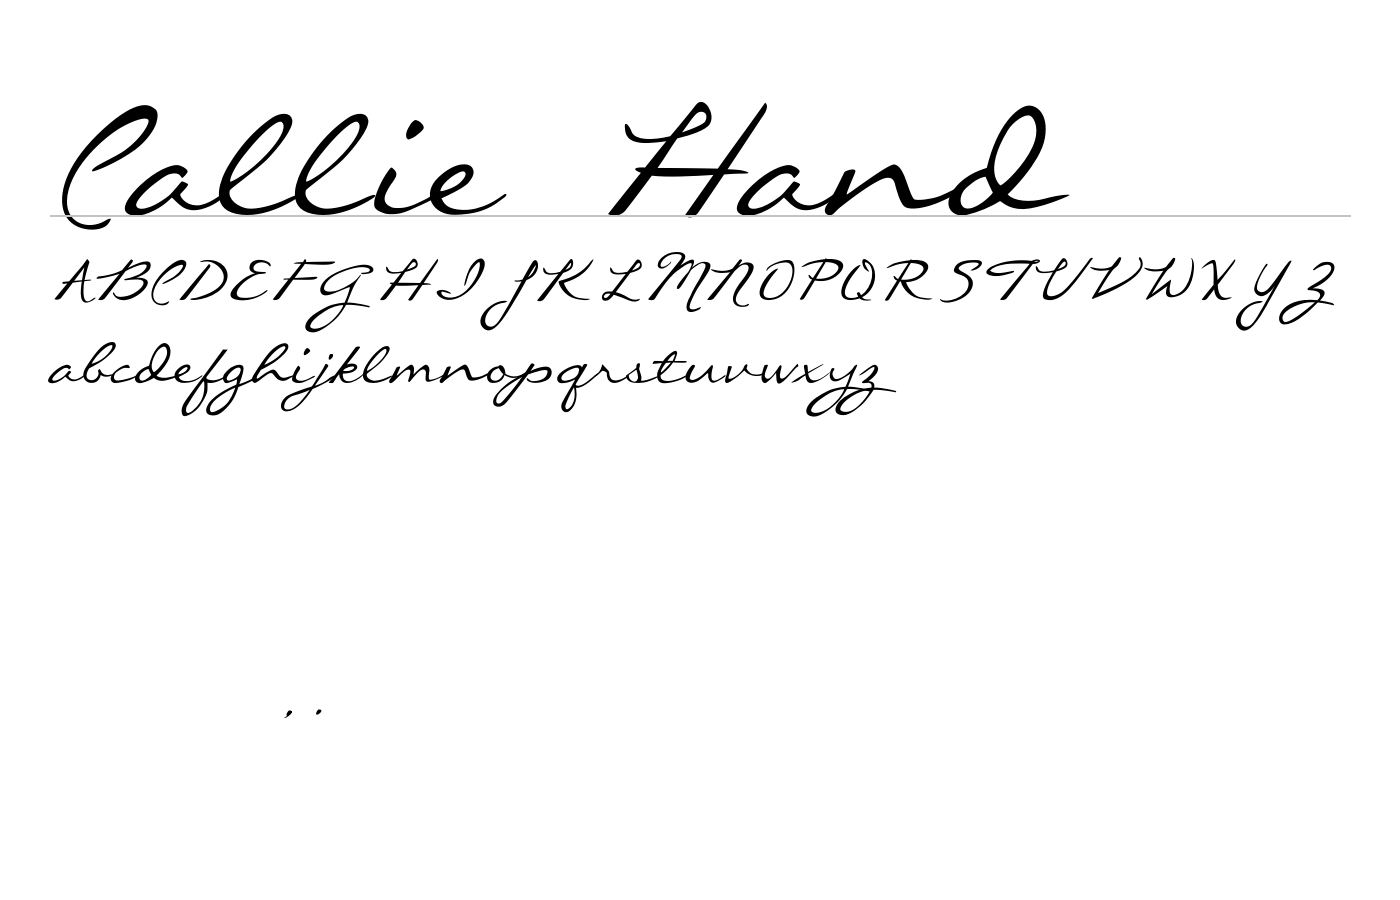 Callie Hand
ABCDEFGHIJKLMNOPQRSTUVWXYZ
abcdefghijklmnopqrstuvwxyz
, .